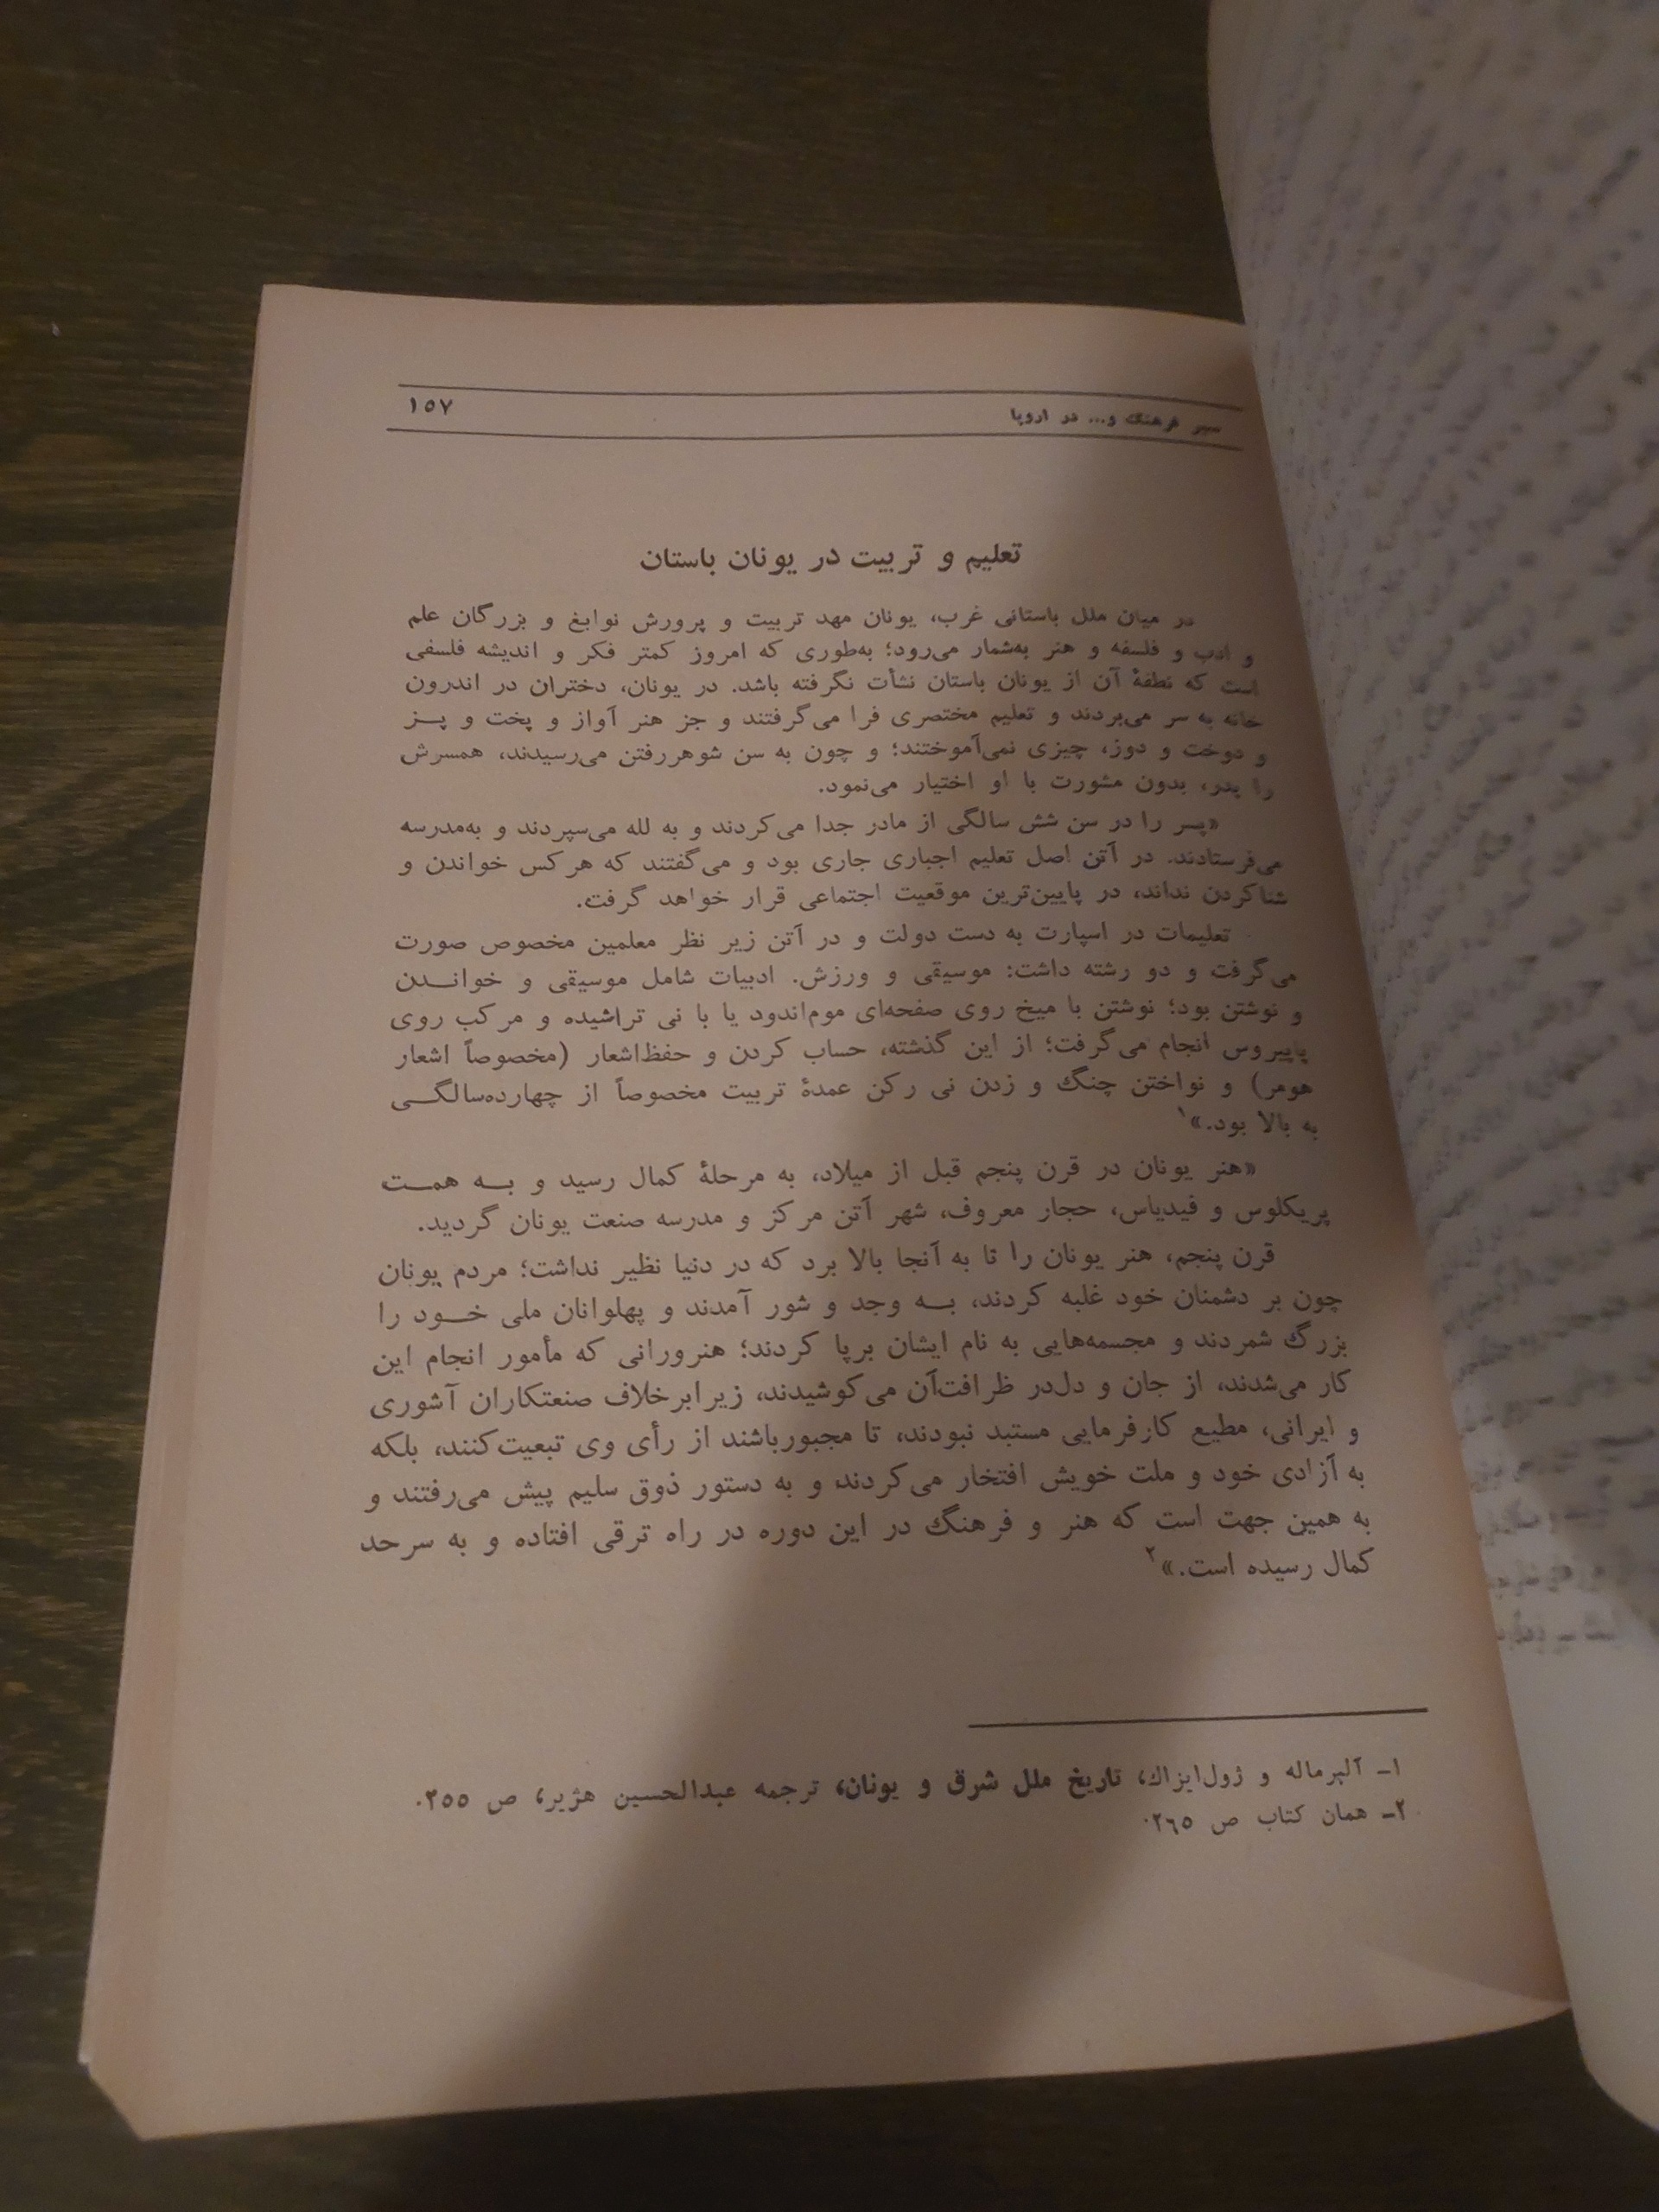 سیر فرهنگ و... در اروپا
۱۵۷
تعلیم و تربیت در یونان باستان
در میان ملل باستانی غرب، یونان مهد تربیت و پرورش نوابغ و بزرگان علم
و ادب و فلسفه و هنر به‌شمار می‌رود؛ به‌طوری که امروز کمتر فکر و اندیشه فلسفی
است که نطفهٔ آن از یونان باستان نشأت نگرفته باشد. در یونان، دختران در اندرون
خانه به سر می‌بردند و تعلیم مختصری فرا می‌گرفتند و جز هنر آواز و پخت و پــز
و دوخت و دوز، چیزی نمی‌آموختند؛ و چون به سن شوهررفتن می‌رسیدند، همسرش
را پدر، بدون مشورت با او اختیار می‌نمود.
«پسر را در سن شش سالگی از مادر جدا می‌کردند و به لله می‌سپردند و به‌مدرسه
می‌فرستادند. در آتن اصل تعلیم اجباری جاری بود و می‌گفتند که هرکس خواندن و
شناکردن نداند، در پایین‌ترین موقعیت اجتماعی قرار خواهد گرفت.
تعلیمات در اسپارت به دست دولت و در آتن زیر نظر معلمین مخصوص صورت
می‌گرفت و دو رشته داشت: موسیقی و ورزش. ادبیات شامل موسیقی و خوانــدن
و نوشتن بود؛ نوشتن با میخ روی صفحه‌ای موم‌اندود یا با نی تراشیده و مرکب روی
پاپیروس انجام می‌گرفت؛ از این گذشته، حساب کردن و حفظ‌اشعار (مخصوصاً اشعار
هومر) و نواختن چنگ و زدن نی رکن عمدهٔ تربیت مخصوصاً از چهارده‌سالگــی
به بالا بود.»۱
«هنر یونان در قرن پنجم قبل از میلاد، به مرحلهٔ کمال رسید و بــه همــت
پریکلوس و فیدیاس، حجار معروف، شهر آتن مرکز و مدرسه صنعت یونان گردید.
قرن پنجم، هنر یونان را تا به آنجا بالا برد که در دنیا نظیر نداشت؛ مردم یونان
چون بر دشمنان خود غلبه کردند، بــه وجد و شور آمدند و پهلوانان ملی خــود را
بزرگ شمردند و مجسمه‌هایی به نام ایشان برپا کردند؛ هنرورانی که مأمور انجام این
کار می‌شدند، از جان و دل‌در ظرافت‌آن می‌کوشیدند، زیرابرخلاف صنعتکاران آشوری
و ایرانی، مطیع کارفرمایی مستبد نبودند، تا مجبورباشند از رأی وی تبعیت‌کنند، بلکه
به آزادی خود و ملت خویش افتخار می‌کردند و به دستور ذوق سلیم پیش می‌رفتند و
به همین جهت است که هنر و فرهنگ در این دوره در راه ترقی افتاده و به سرحد
کمال رسیده است.»۲
۱ـ آلبرماله و ژول‌ایزاك، تاریخ ملل شرق و یونان، ترجمه عبدالحسین هژیر، ص ۲۵۵.
۲ـ همان کتاب ص ۲۶۵.